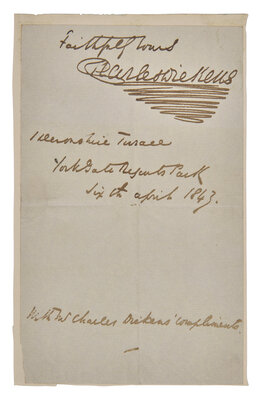 Faithfully Yours
Charles Dickens
1 Devonshire Terrace
York Gate Regents Park
Sixth April 1843.
With Mr Charles Dickens' compliments.